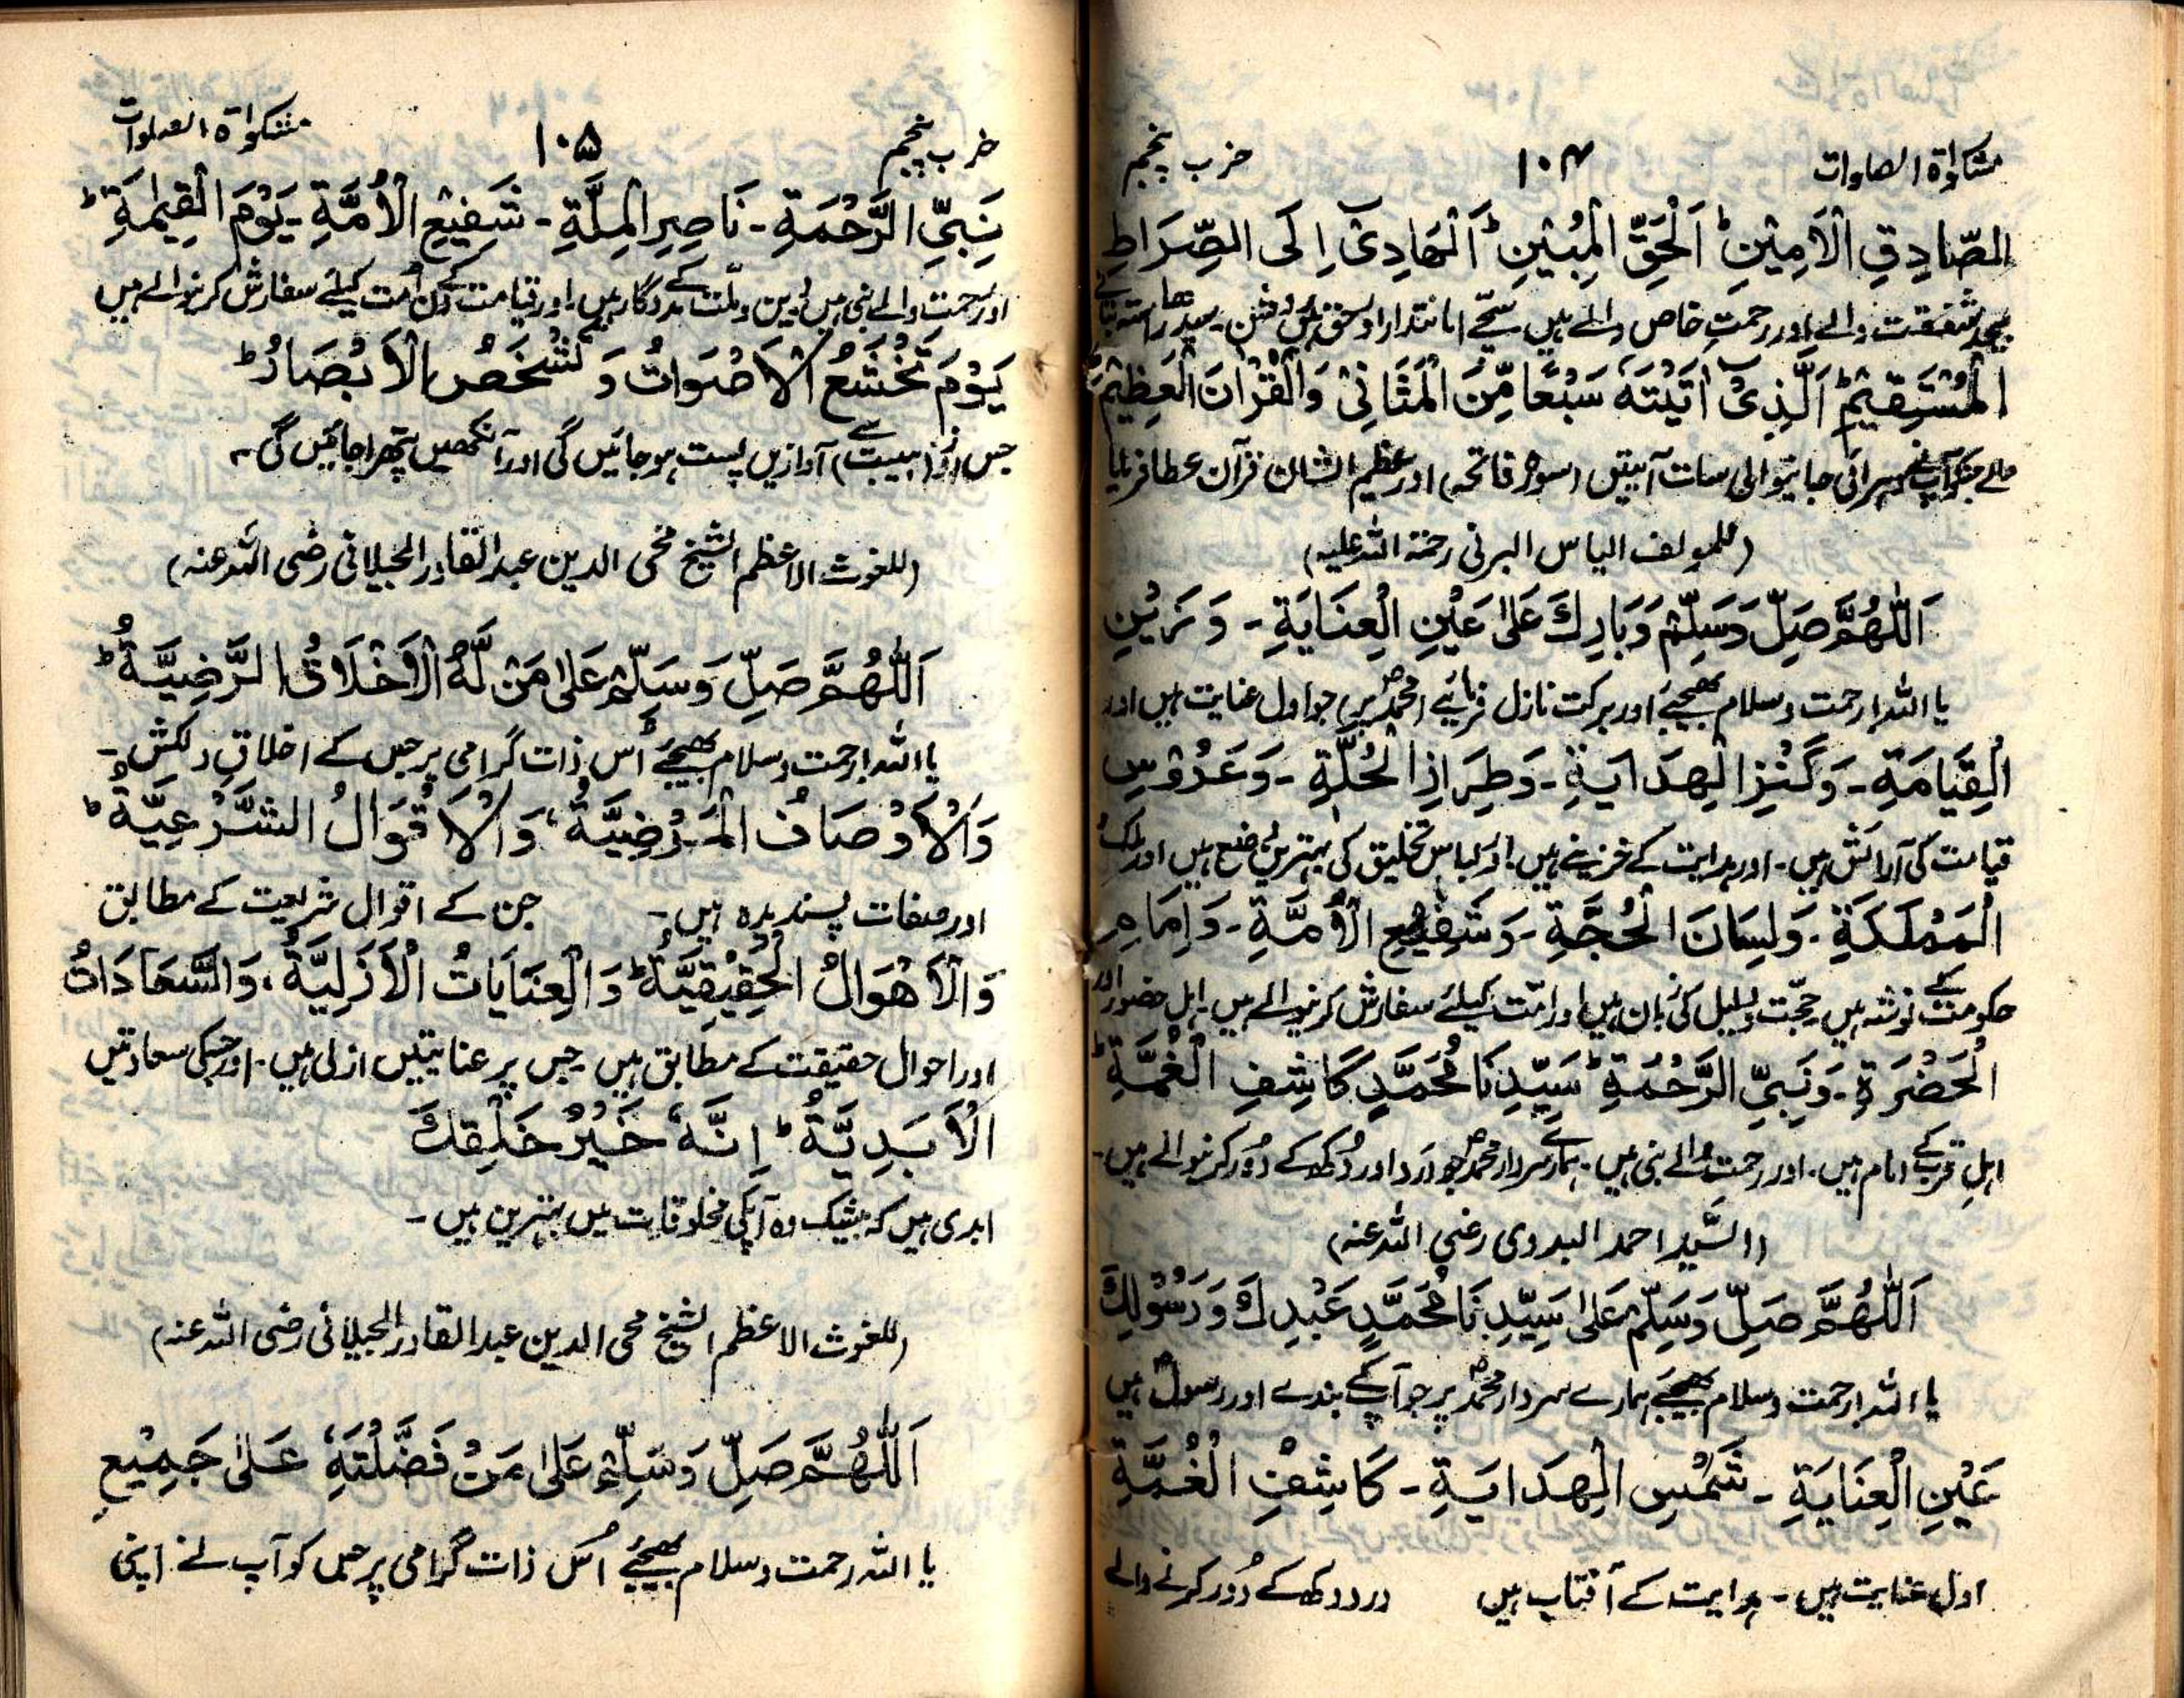 مشکوٰۃ الصلوات ۱۰۴ حزب پنجم
الصَّادِقِ الْاَمِيْنِ ؕ اَلْحَقِّ الْمُبِيْنِ ؕ اَلْهَادِیْ اِلَی الصِّرَاطِ
بیحد شفقت والے اور رحمتِ خاص والے ہیں سچّے امانتدار اور حق روشن سیدھا راستہ بتانے
الْمُسْتَقِيْمِ ؕ اَلَّذِیْ اٰتَيْتَهٗ سَبْعًا مِّنَ الْمَثَانِیْ وَالْقُرْاٰنَ الْعَظِيْمَ ؕ
والے جنکو آپ نے دہرائی جانیوالی سات آیتیں (سورۂ فاتحہ) اور عظیم الشان قرآن عطا فرمایا
(للمولف الیاس البرنی رحمۃ اللہ علیہ)
اَللّٰهُمَّ صَلِّ وَسَلِّمْ وَبَارِكْ عَلٰی عَيْنِ الْعِنَايَةِ ۔ وَزَيْنِ
یا اللہ! رحمت و سلام بھیجئے اور برکت نازل فرمائیے محمدؐ پر جو اول عنایت ہیں اور
الْقِيَامَةِ ۔ وَكَنْزِ الْهِدَايَةِ ۔ وَطِرَازِ الْحُلَّةِ ۔ وَعَرُوْسِ
قیامت کی آرائش ہیں ۔ اور ہدایت کے خزینے ہیں ۔ اور لباس تخلیق کی بہترین وضع ہیں اور ملک
الْمَمْلَكَةِ ۔ وَلِسَانِ الْحُجَّةِ ۔ وَشَفِيْعِ الْاُمَّةِ ۔ وَاِمَامِ
حکومت کے نوشہ ہیں حجّت و دلیل کی زبان ہیں اور امّت کیلئے سفارش کرنیوالے ہیں ۔ اہل حضور اور
الْحَضْرَةِ ۔ وَنَبِیِّ الرَّحْمَةِ ؕ سَيِّدِنَا مُحَمَّدٍ كَاشِفِ الْغُمَّةِ ؕ
اہلِ قرب کے امام ہیں ۔ اور رحمت والے نبی ہیں ۔ ہمارے سردار محمدؐ جو درد اور دُکھ کے دُور کرنیوالے ہیں ۔
(السّید احمد البدوی رضی اللہ عنہ)
اَللّٰهُمَّ صَلِّ وَسَلِّمْ عَلٰی سَيِّدِنَا مُحَمَّدٍ عَبْدِكَ وَرَسُوْلِكَ
یا اللہ! رحمت و سلام بھیجئے ہمارے سردار محمدؐ پر جو آپ کے بندے اور رسول ہیں
عَيْنِ الْعِنَايَةِ ۔ شَمْسِ الْهِدَايَةِ ۔ كَاشِفِ الْغُمَّةِ
اول عنایت ہیں ۔ ہدایت کے آفتاب ہیں درد دکھ کے دُور کرنے والے
مشکوٰۃ الصلوات ۱۰۵ حزب پنجم
نَبِیِّ الرَّحْمَةِ ۔ نَاصِرِ الْمِلَّةِ ۔ شَفِيْعِ الْاُمَّةِ ۔ يَوْمَ الْقِيٰمَةِ ؕ
اور رحمت والے نبی ہیں دین و ملّت کے مددگار ہیں ۔ اور قیامت کے دن اُمت کیلئے سفارش کرنیوالے ہیں
يَوْمَ تَخْشَعُ الْاَصْوَاتُ وَتَشْخَصُ الْاَبْصَارُ ؕ
جس روز (ہیبت سے) آوازیں پست ہو جائیں گی اور آنکھیں پتھرا جائیں گی ۔
(للغوث الاعظم الشیخ محی الدین عبدالقادر الجیلانی رضی اللہ عنہ)
اَللّٰهُمَّ صَلِّ وَسَلِّمْ عَلٰی مَنْ لَّهُ الْاَخْلَاقُ الرَّضِيَّةُ ؕ
یا اللہ! رحمت و سلام بھیجئے اُس ذات گرامی پر جس کے اخلاق دلکش ۔
وَالْاَوْصَافُ الْمَرْضِيَّةُ ، وَالْاَقْوَالُ الشَّرْعِيَّةُ ؕ
اور صفات پسندیدہ ہیں ۔ جن کے اقوال شریعت کے مطابق
وَالْاَهْوَالُ الْحَقِيْقِيَّةُ ؕ وَالْعِنَايَاتُ الْاَزَلِيَّةُ ، وَالسَّعَادَاتُ
اور احوال حقیقت کے مطابق ہیں جس پر عنایتیں ازلی ہیں ۔ اور جسکی سعادتیں
الْاَبَدِيَّةُ ؕ اِنَّهٗ خَيْرُ خَلْقِكَ
ابدی ہیں کہ بیشک وہ آپکی مخلوقات میں بہترین ہیں ۔
(للغوث الاعظم الشیخ محی الدین عبدالقادر الجیلانی رضی اللہ عنہ)
اَللّٰهُمَّ صَلِّ وَسَلِّمْ عَلٰی مَنْ فَضَّلْتَهٗ عَلٰی جَمِيْعِ
یا اللہ رحمت و سلام بھیجئے اُس ذات گرامی پر جس کو آپ نے اپنی